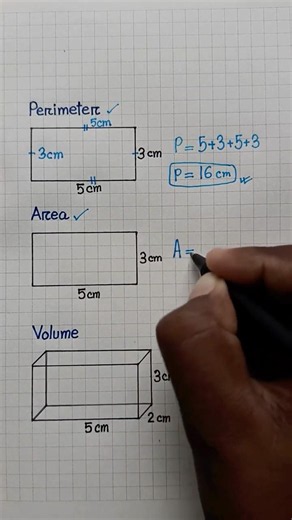 Perimeter ✓
5cm
3cm
3cm
5cm
P = 5+3+5+3
P = 16 cm
Area ✓
3cm
5cm
A =
Volume
5cm
2cm